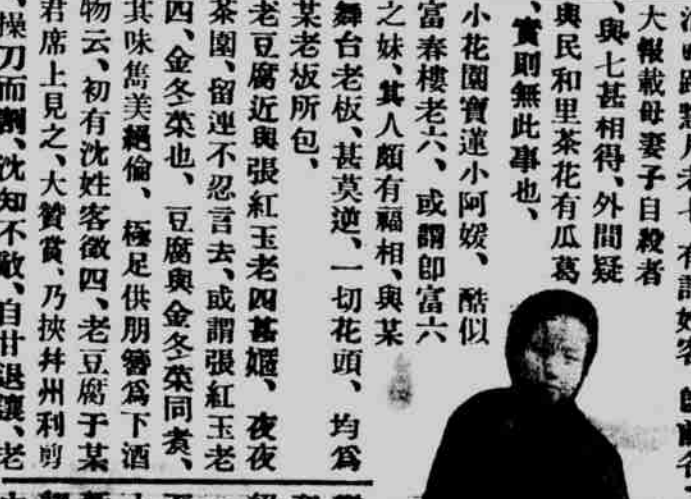 有
大報載母妻子自殺者
、與七甚相得、外間疑
與民和里茶花有瓜葛
、實則無此事也、
小花園寶蓮小阿媛、酷似
富春樓老六、或謂卽富六
之妹、其人頗有福相、與某
舞台老板、甚莫逆、一切花頭、均爲
某老板所包、
老豆腐近與張紅玉老四甚暱、夜夜
茶圍、留連不忍言去、或謂張紅玉老
四、金冬菜也、豆腐與金冬菜同煑、
其味雋美絕倫、極足供朋簪爲下酒
物云、初有沈姓客徵四、老豆腐于某
君席上見之、大贊賞、乃挾幷州利剪
、操刀而割、沈知不敵、自甘退讓、老